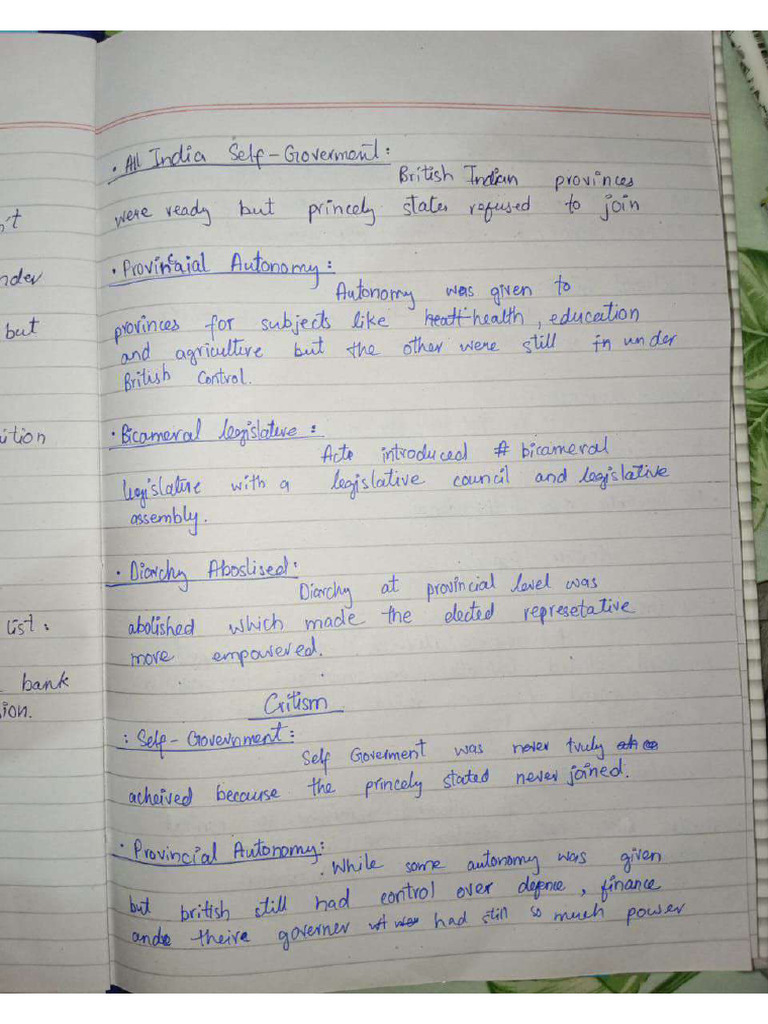 • All India Self-Goverment:
British Indian provinces
were ready but princely states refused to join
• Provincial Autonomy:
Autonomy was given to
provinces for subjects like health, education
and agriculture but the other were still in under
British Control.
• Bicameral legislative:
Acts introduced bicameral
legislature with a legislative council and legislative
assembly.
• Diarchy Aboslised:
Diarchy at provincial level was
abolished which made the elected represetative
more empowered.
Critism
: Self-Government:
Self Goverment was never truly
acheived because the princely stated never joined.
• Provincial Autonomy:
While some autonomy was given
but british still had control over defence, finance
and theire governer had still so much power
nder
but
ution
list:
bank